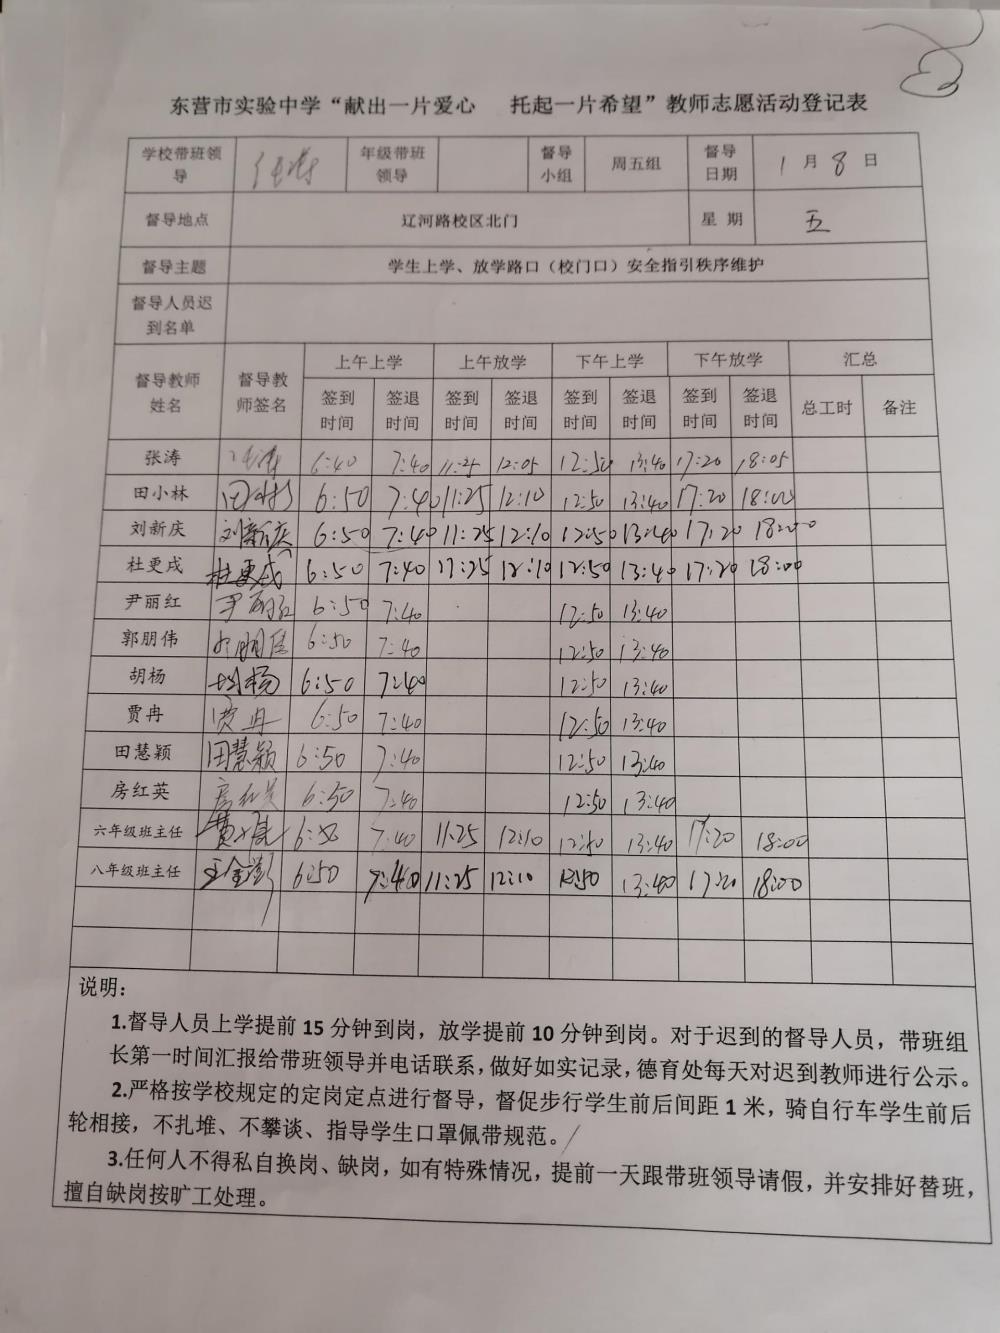 东营市实验中学“献出一片爱心 托起一片希望”教师志愿活动登记表
学校带班领导 张涛 年级带班领导 督导小组 周五组 督导日期 1月8日
督导地点 辽河路校区北门 星期 五
督导主题 学生上学、放学路口（校门口）安全指引秩序维护
督导人员迟到名单
督导教师姓名 督导教师签名 上午上学 上午放学 下午上学 下午放学 汇总
签到时间 签退时间 签到时间 签退时间 签到时间 签退时间 签到时间 签退时间 总工时 备注
张涛 张涛 6:40 7:40 11:25 12:05 12:50 13:40 17:20 18:05
田小林 田小林 6:50 7:40 11:25 12:10 12:50 13:40 17:20 18:00
刘新庆 刘新庆 6:50 7:40 11:25 12:10 12:50 13:40 17:20 18:00
杜更戌 杜更戌 6:50 7:40 11:25 12:10 12:50 13:40 17:20 18:00
尹丽红 尹丽红 6:50 7:40 12:50 13:40
郭朋伟 郭朋伟 6:50 7:40 12:50 13:40
胡杨 胡杨 6:50 7:40 12:50 13:40
贾冉 贾冉 6:50 7:40 12:50 13:40
田慧颖 田慧颖 6:50 7:40 12:50 13:40
房红英 房红英 6:50 7:40 12:50 13:40
六年级班主任 6:50 7:40 11:25 12:10 12:50 13:40 17:20 18:00
八年级班主任 6:50 7:40 11:25 12:10 12:50 13:40 17:20 18:00
说明：
1.督导人员上学提前 15 分钟到岗，放学提前 10 分钟到岗。对于迟到的督导人员，带班组
长第一时间汇报给带班领导并电话联系，做好如实记录，德育处每天对迟到教师进行公示。
2.严格按学校规定的定岗定点进行督导，督促步行学生前后间距 1 米，骑自行车学生前后
轮相接，不扎堆、不攀谈、指导学生口罩佩带规范。
3.任何人不得私自换岗、缺岗，如有特殊情况，提前一天跟带班领导请假，并安排好替班，
擅自缺岗按旷工处理。